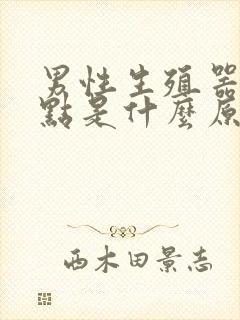 男性生殖器
點是什麼原
西木田景志